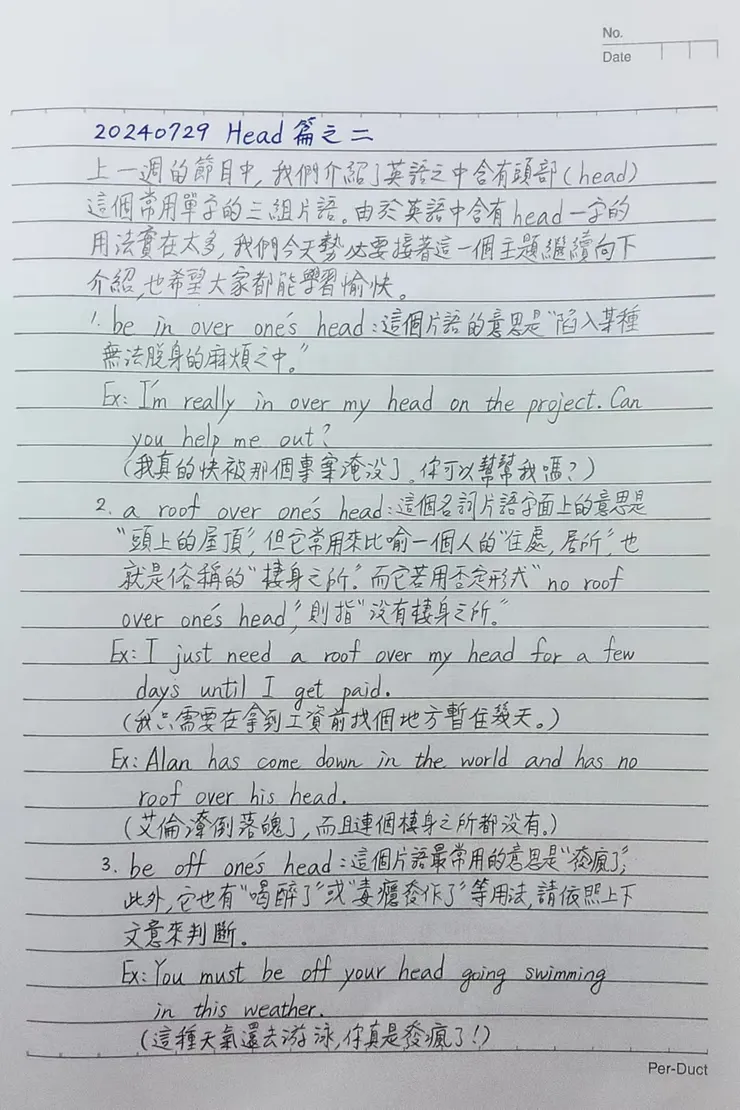 No.
Date
20240729 Head 篇之二
上一週的節目中,我們介紹了英語之中含有頭部(head)
這個常用單字的三組片語。由於英語中含有head一字的
用法實在太多,我們今天勢必要接著這一個主題繼續向下
介紹,也希望大家都能學習愉快。
1. be in over one's head:這個片語的意思是"陷入某種
無法脫身的麻煩之中。"
Ex: I'm really in over my head on the project. Can
you help me out?
(我真的快被那個專案淹没了。你可以幫幫我嗎?)
2. a roof over one's head:這個名詞片語字面上的意思是
"頭上的屋頂",但它常用來比喻一個人的"住處,居所",也
就是俗稱的"棲身之所."而它若用否定形式"no roof
over one's head",則指"没有棲身之所。"
Ex: I just need a roof over my head for a few
days until I get paid.
(我只需要在拿到工資前找個地方暫住幾天。)
Ex: Alan has come down in the world and has no
roof over his head.
(艾倫潦倒落魄了,而且連個棲身之所都没有。)
3. be off one's head:這個片語最常用的意思是"發瘋了",
此外,它也有"喝醉了"或"毒癮發作了"等用法,請依照上下
文意來判斷。
Ex: You must be off your head going swimming
in this weather.
(這種天氣還去游泳,你真是發瘋了!)
Per-Duct